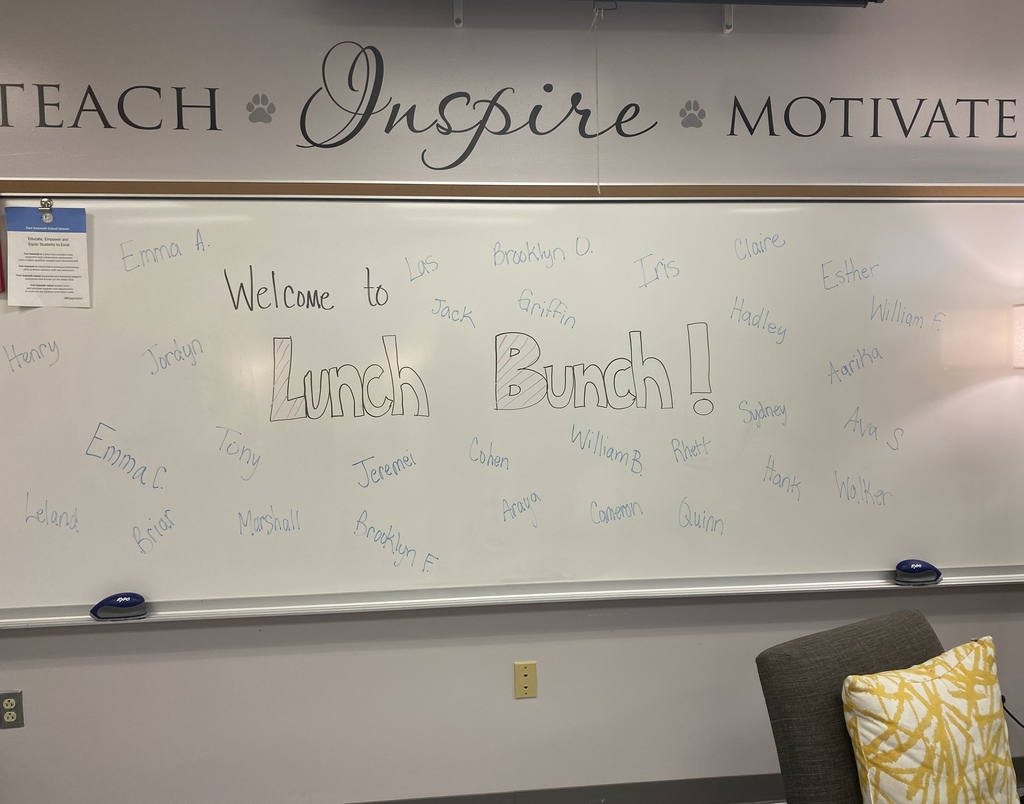 TEACH Inspire MOTIVATE
Educate, Empower and
Equip Students to Excel
Emma A.
Las
Brooklyn O.
Iris
Claire
Esther
Welcome to
Jack
Griffin
Hadley
William F.
Henry
Jordyn
Lunch Bunch!
Aarika
Sydney
Ava S
Emma C.
Tony
Jeremei
Cohen
William B.
Rhett
Hank
Walker
Leland
Briar
Marshall
Brooklyn F.
Araya
Cameron
Quinn
EXPO
EXPO